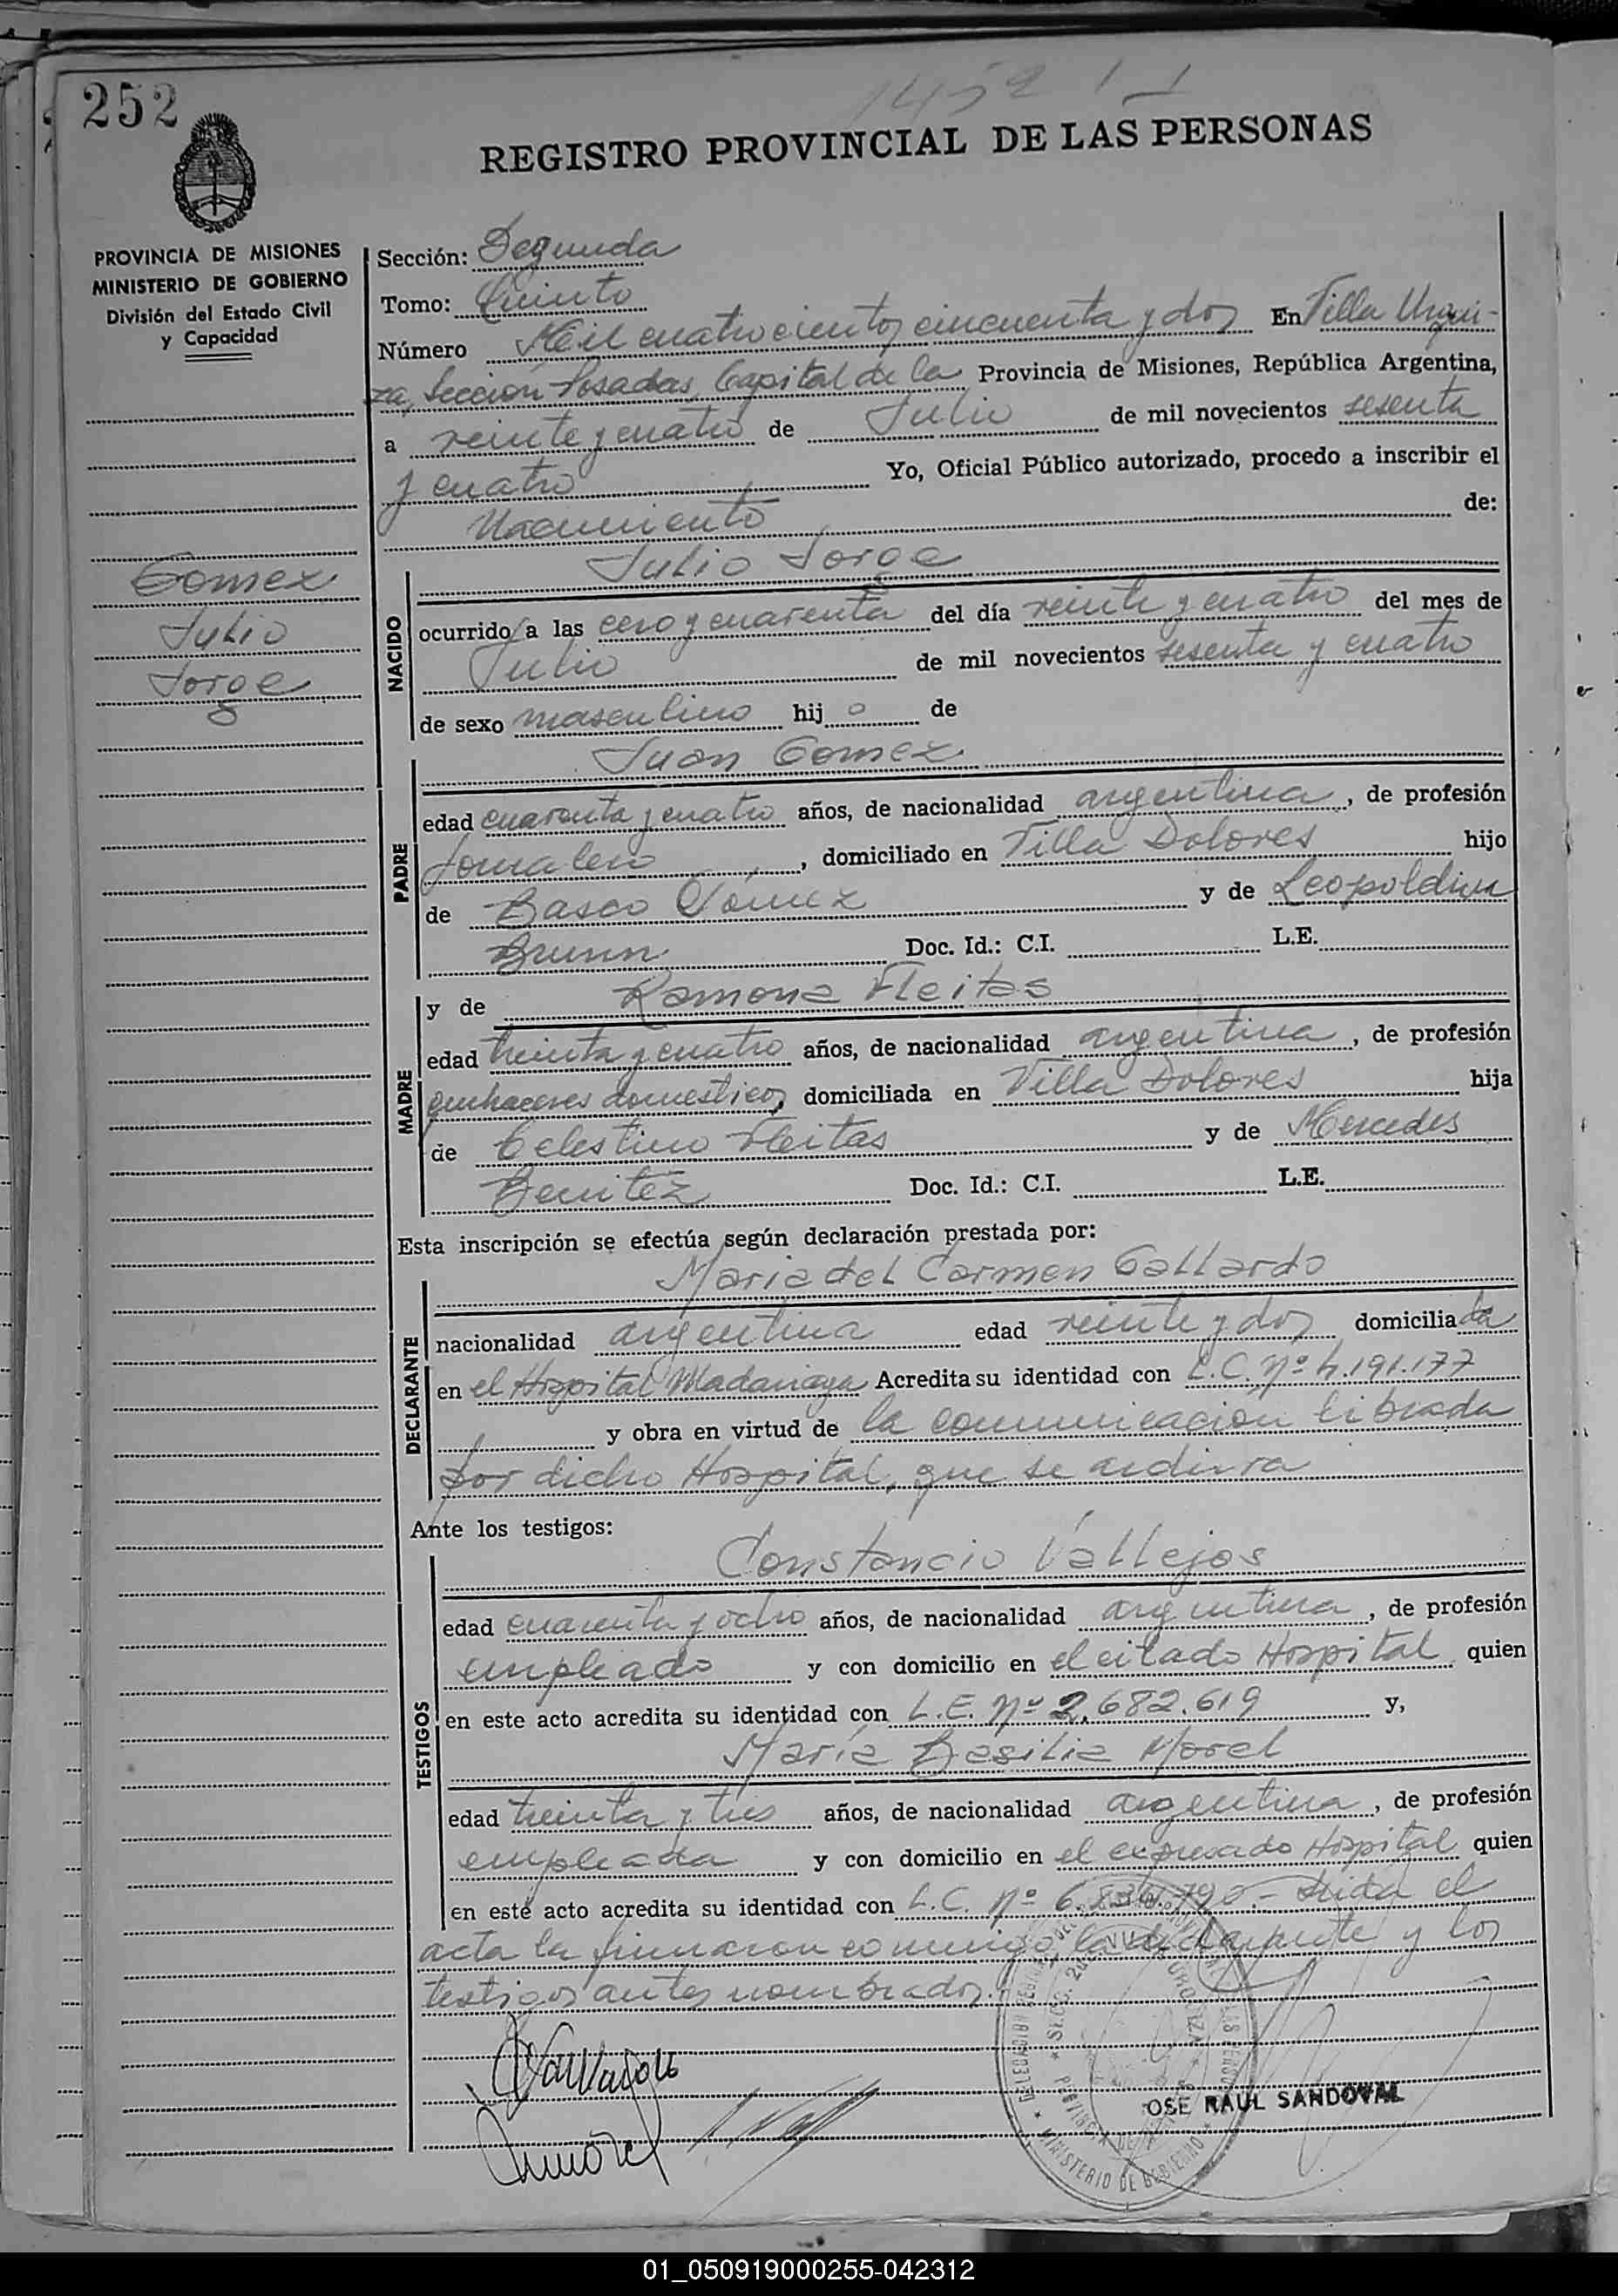 252
1452
REGISTRO PROVINCIAL DE LAS PERSONAS
PROVINCIA DE MISIONES
MINISTERIO DE GOBIERNO
División del Estado Civil
y Capacidad
Gomez
Julio
Jorge
Sección: Segunda
Tomo: Quinto
Número Mil cuatrocientos cincuenta y dos En Villa Urqui-
za, Sección Posadas, Capital de la Provincia de Misiones, República Argentina,
a veinte y cuatro de Julio de mil novecientos sesenta
y cuatro Yo, Oficial Público autorizado, procedo a inscribir el
Nacimiento de:
Julio Jorge
NACIDO
ocurrido a las cero y cuarenta del día veinte y cuatro del mes de
Julio de mil novecientos sesenta y cuatro
de sexo masculino hij o de
Juan Gomez
PADRE
edad cuarenta y cuatro años, de nacionalidad argentina, de profesión
Jornalero, domiciliado en Villa Dolores hijo
de Basco Gómez y de Leopoldina
Brunn Doc. Id.: C.I. L.E.
MADRE
y de Ramona Fleitas
edad treinta y cuatro años, de nacionalidad argentina, de profesión
quehaceres domesticos, domiciliada en Villa Dolores hija
de Celestino Fleitas y de Mercedes
Benitez Doc. Id.: C.I. L.E.
Esta inscripción se efectúa según declaración prestada por:
Maria del Carmen Gallardo
DECLARANTE
nacionalidad argentina edad veinte y dos domiciliada
en el Hospital Madariaga Acredita su identidad con L.C. Nº 4.191.177
y obra en virtud de la comunicación librada
por dicho Hospital, que se archiva
Ante los testigos:
Constancio Vallejos
TESTIGOS
edad cuarenta y ocho años, de nacionalidad argentina, de profesión
empleado y con domicilio en el citado Hospital quien
en este acto acredita su identidad con L.E. Nº 2.682.619 y,
María Basilia Morel
edad treinta y tres años, de nacionalidad argentina, de profesión
empleada y con domicilio en el expresado Hospital quien
en este acto acredita su identidad con L.C. Nº Leida el
acta la firmaron conmigo, la declarante y los
testigos antes nombrados.
MINISTERIO DE GOBIERNO
OSE RAUL SANDOVAL
01_050919000255-042312